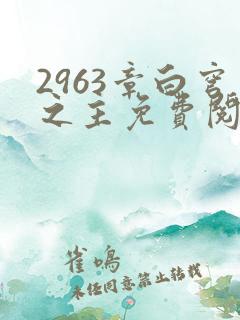 2963章白宫
之主免費閱
雀鳴
未经同意禁止转载